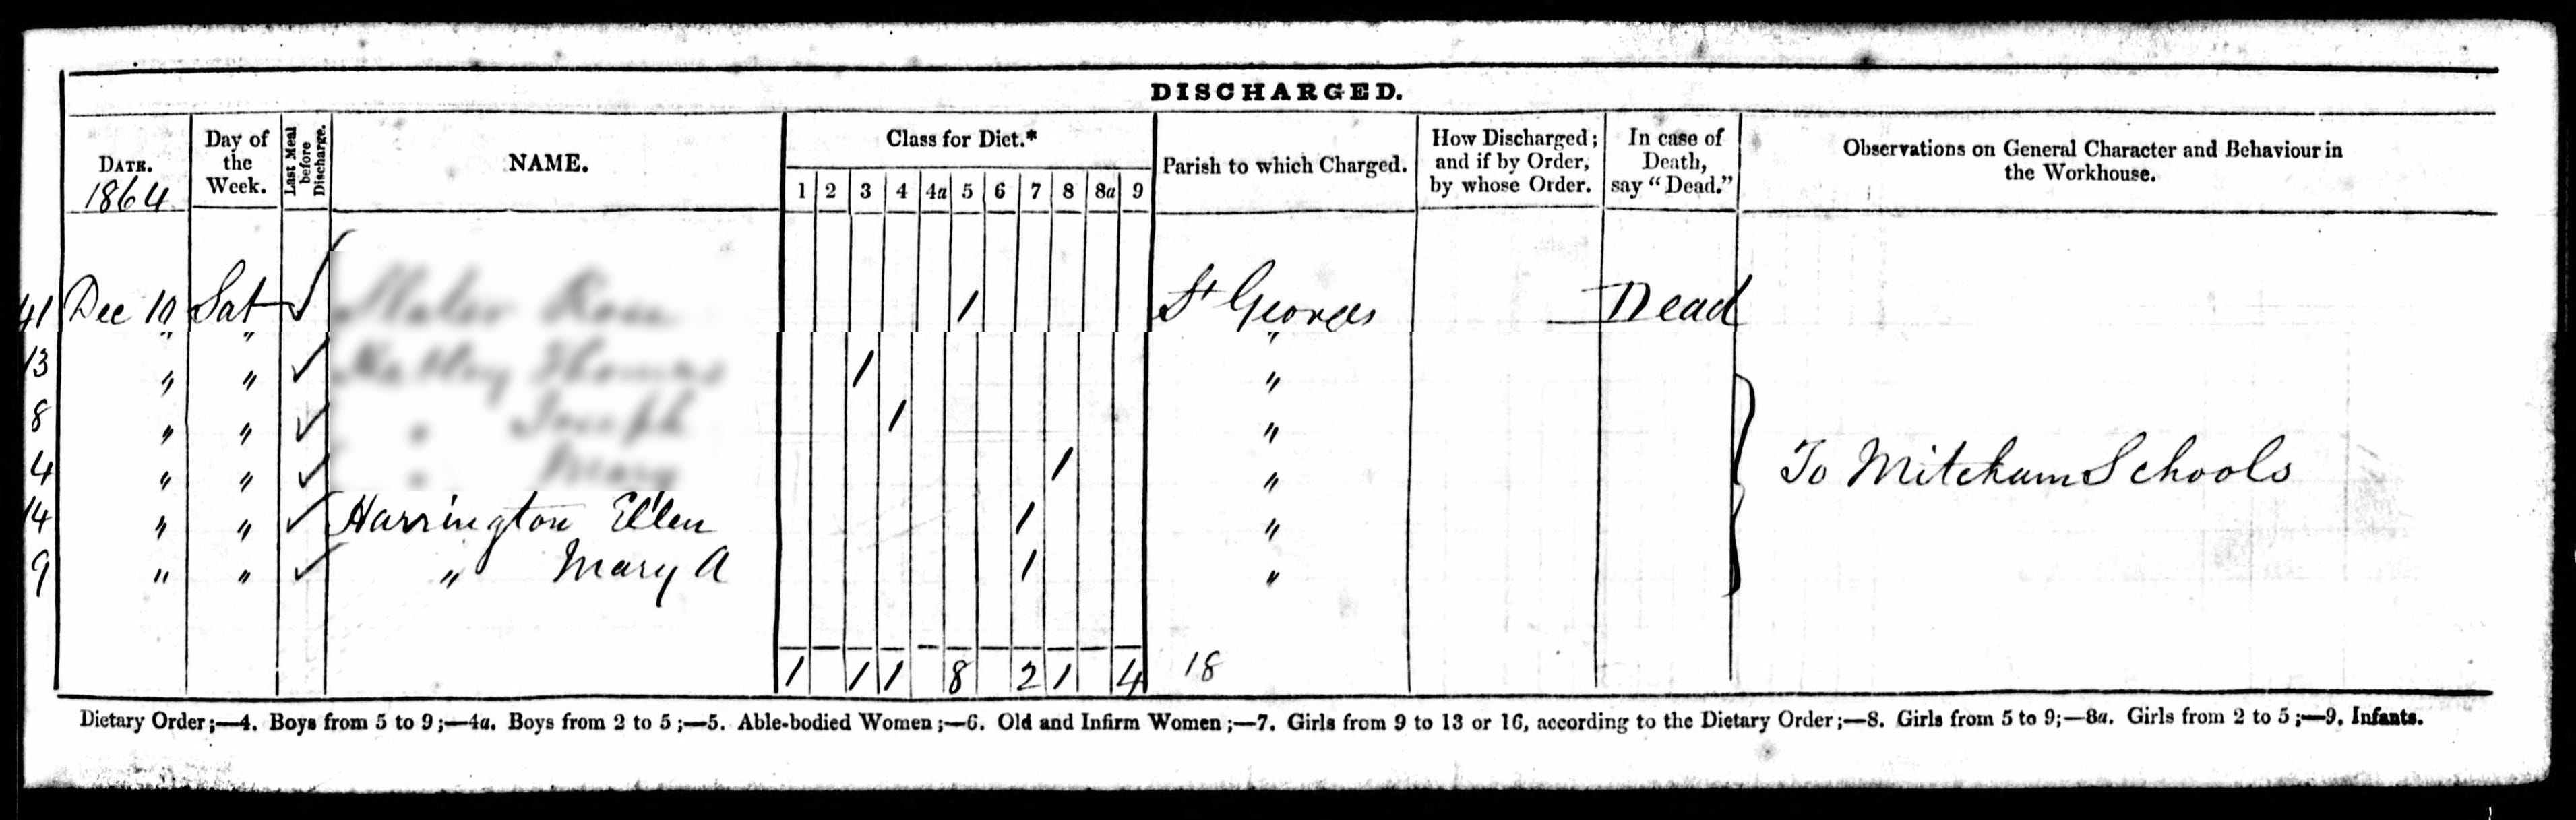 DISCHARGED.
DATE. 1864
Day of the Week.
Last Meal before Discharge.
NAME.
Class for Diet.*
1 2 3 4 4a 5 6 7 8 8a 9
Parish to which Charged.
How Discharged; and if by Order, by whose Order.
In case of Death, say "Dead."
Observations on General Character and Behaviour in the Workhouse.
41 Dec 10 Sat ✓ 1 St Georges Dead
13 " " ✓ 1 "
8 " " ✓ 1 "
4 " " ✓ 1 "
To Mitcham Schools
14 " " ✓ Harrington Ellen 1 "
9 " " ✓ " Mary A 1 "
1 1 1 8 2 1 4 18
Dietary Order;—4. Boys from 5 to 9;—4a. Boys from 2 to 5;—5. Able-bodied Women;—6. Old and Infirm Women;—7. Girls from 9 to 13 or 16, according to the Dietary Order;—8. Girls from 5 to 9;—8a. Girls from 2 to 5;—9. Infants.